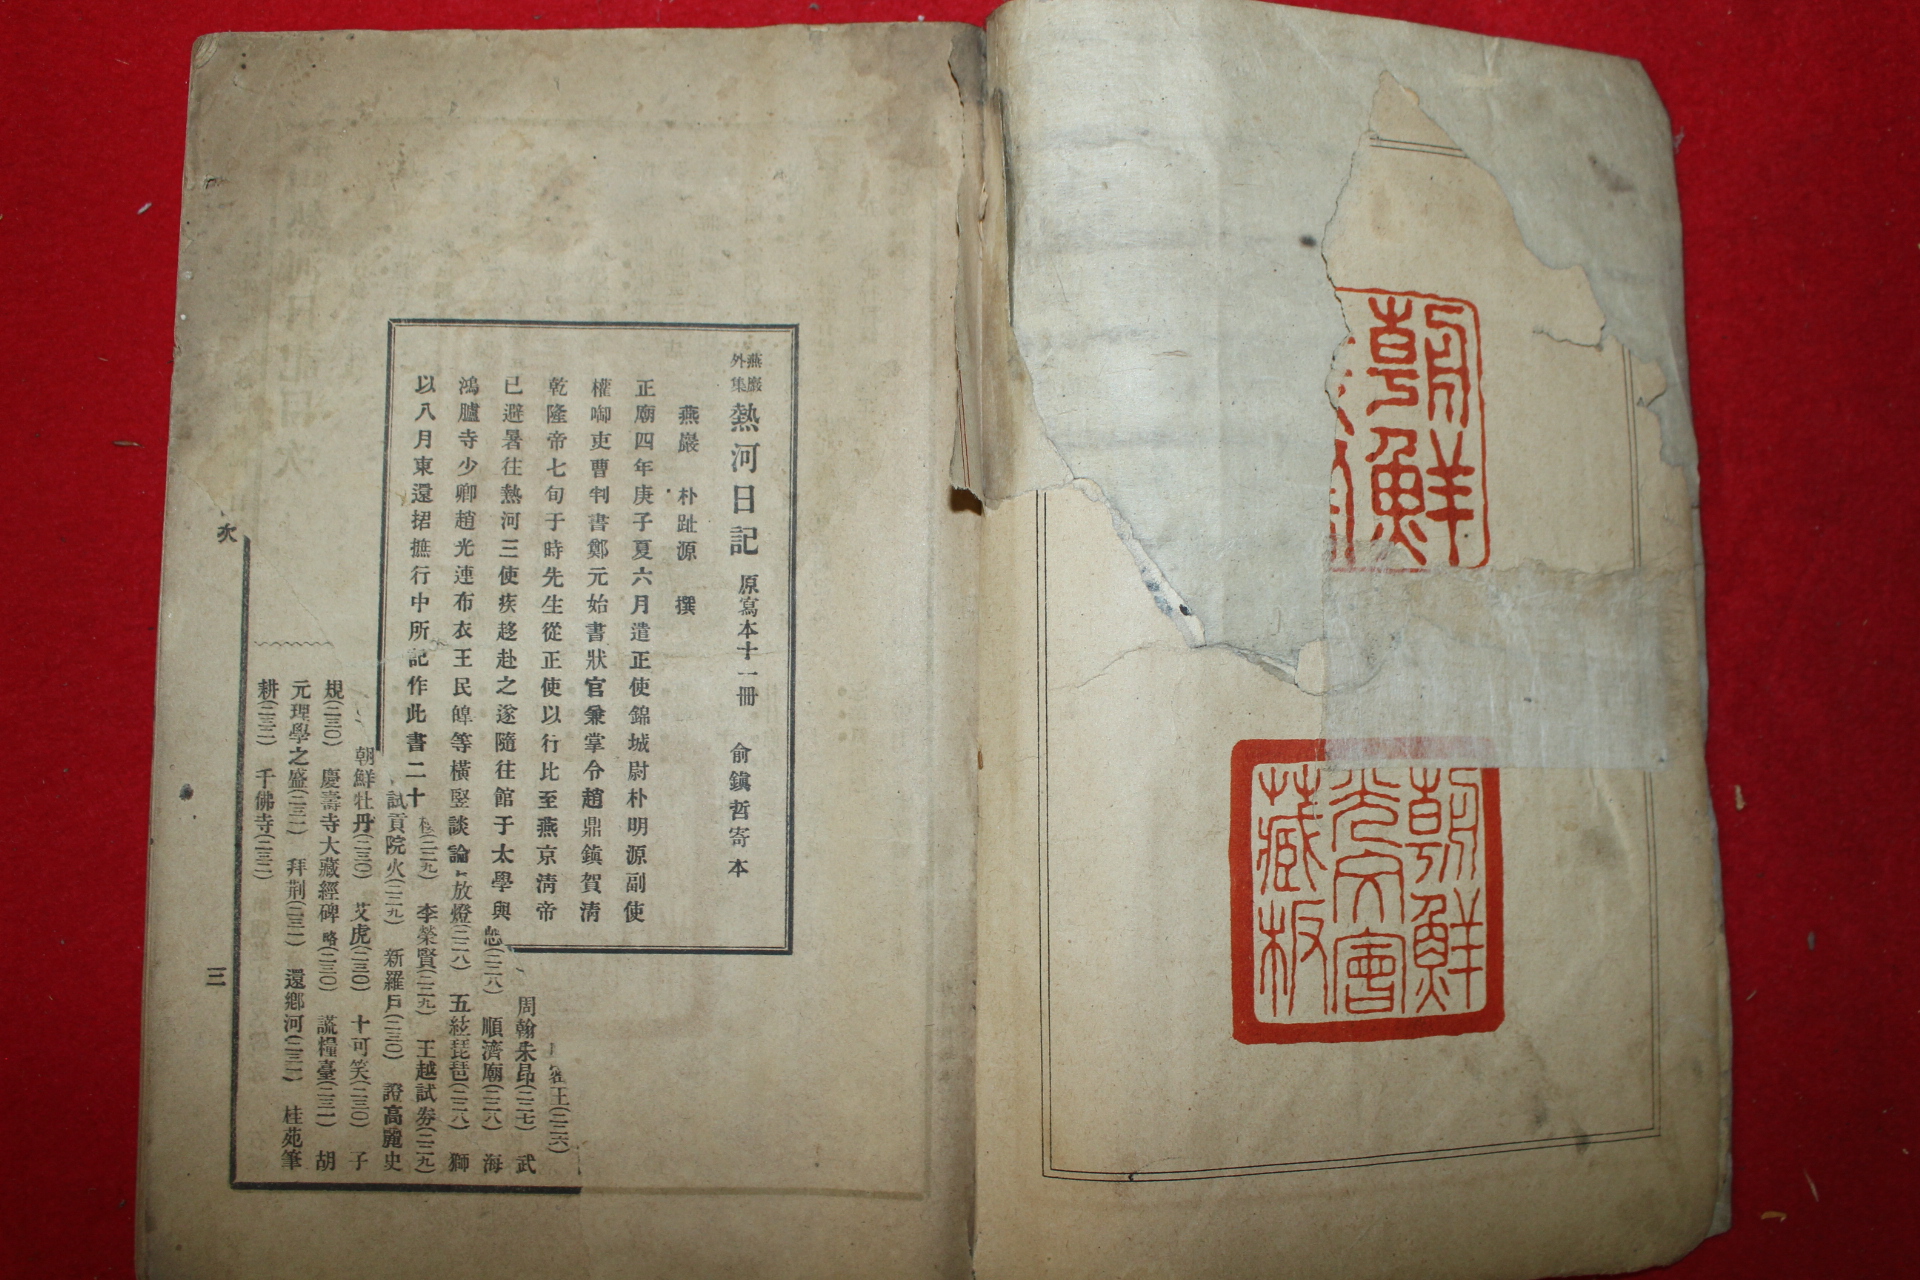 朝鮮
朝鮮
光文會
藏板
燕巖
外集
熱河日記 原寫本十一冊 俞鎭哲寄本
燕巖 朴趾源 撰
正廟四年庚子夏六月遣正使錦城尉朴明源副使
權啣吏曹判書鄭元始書狀官兼掌令趙鼎鎭賀淸
乾隆帝七旬于時先生從正使以行比至燕京淸帝
已避暑往熱河三使疾趍赴之遂隨往館于太學與
鴻臚寺少卿趙光連布衣王民皥等橫竪談論
以八月東還捃摭行中所記作此書二十
王(二二六)
周翰朱昂(二二七) 武
(二二八) 順濟廟(二二八) 海
放燈(二二八) 五絃琵琶(二二八) 獅
(二二九) 李榮賢(二二九) 王越試券(二二九)
試貢院火(二二九) 新羅戶(二三〇) 證高麗史
朝鮮牡丹(二三〇) 艾虎(二三〇) 十可笑(二三〇) 子
規(二三〇) 慶壽寺大藏經碑略(二三〇) 謊糧臺(二三一) 胡
元理學之盛(二三一) 拜荆(二三一) 還鄕河(二三一) 桂苑筆
耕(二三二) 千佛寺(二三二)
次
三